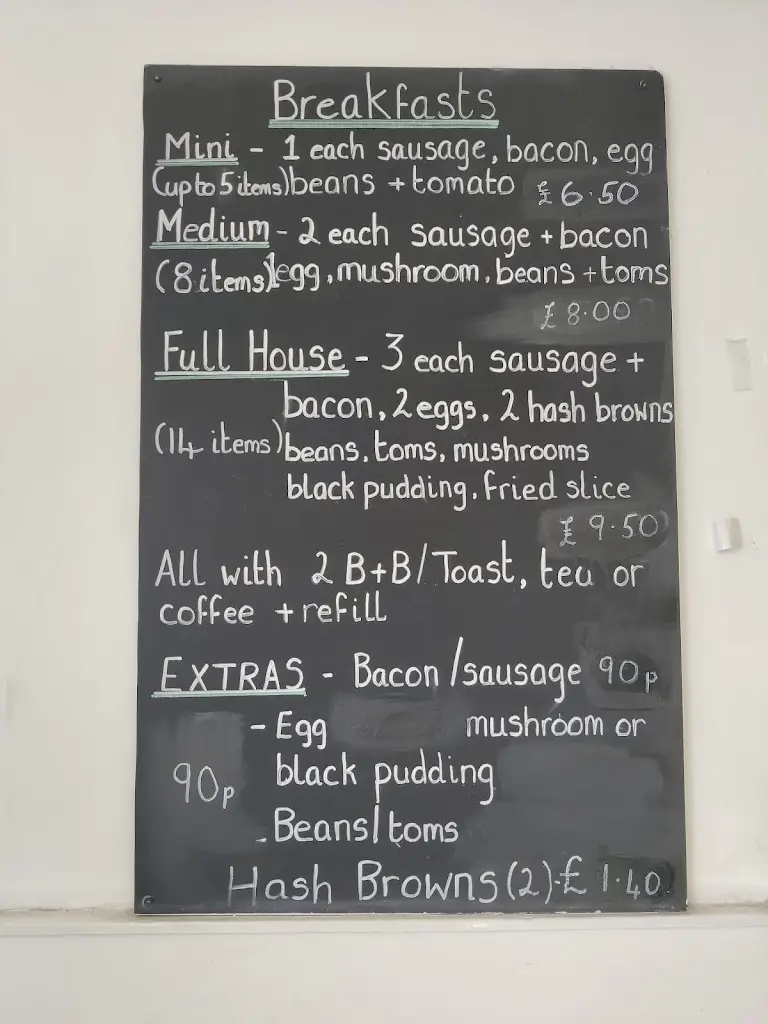 Breakfasts
Mini - 1 each sausage, bacon, egg
(up to 5 items) beans + tomato £6.50
Medium - 2 each sausage + bacon
(8 items) 1egg, mushroom, beans + toms
£8.00
Full House - 3 each sausage +
bacon, 2 eggs, 2 hash browns
(14 items) beans, toms, mushrooms
black pudding, fried slice
£9.50
All with 2 B+B/Toast, tea or
coffee + refill
EXTRAS - Bacon/sausage 90p
- Egg mushroom or
90p black pudding
- Beans/toms
Hash Browns (2) - £1.40